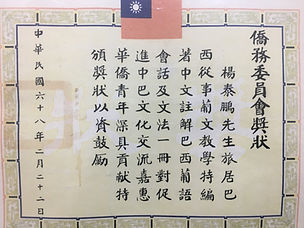 僑務委員會獎狀
楊泰鵬先生旅居巴
西從事葡文教學特編
著中文註解巴西葡語
會話及文法一冊對促
進中巴文化交流嘉惠
華僑青年深具貢獻特
頒獎狀以資鼓勵
中華民國六十八年二月二十二日